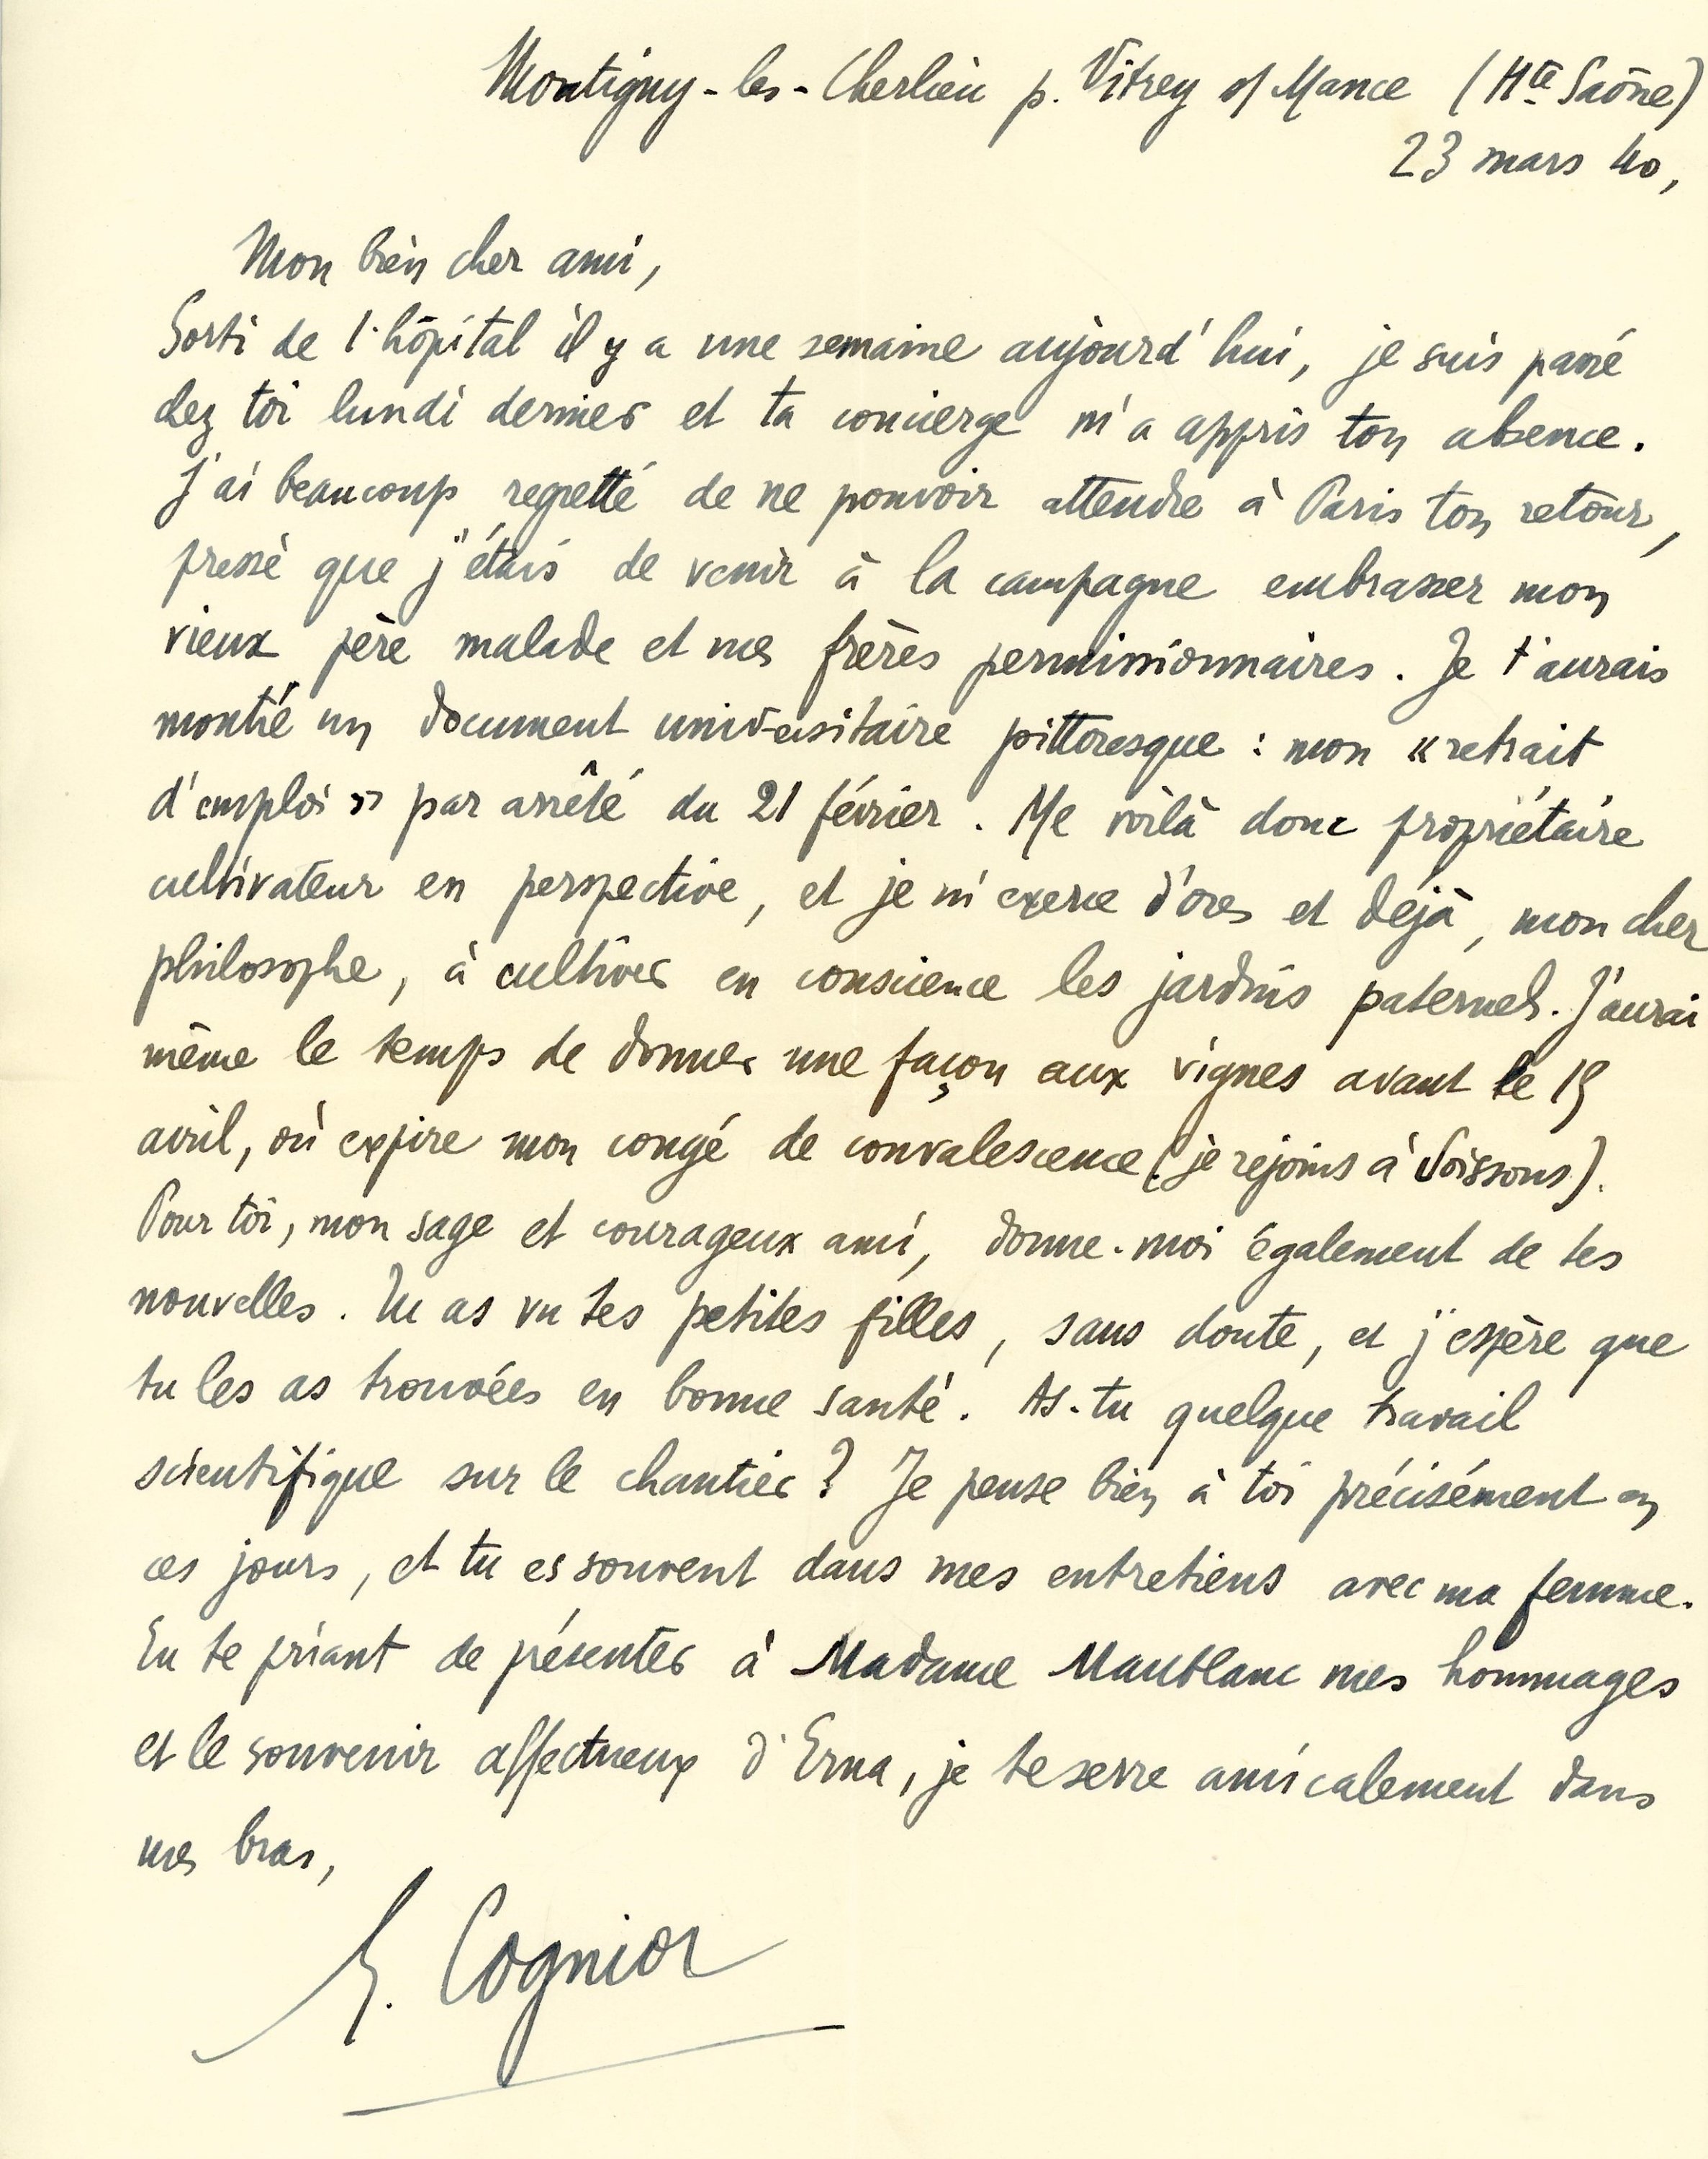 Montigny-les-Cherlieu p. Vitrey s/ Mance (Hte Saône)
23 mars 40,
Mon bien cher ami,
Sorti de l'hôpital il y a une semaine aujourd'hui, je suis passé
chez toi lundi dernier et ta concierge m'a appris ton absence.
J'ai beaucoup regretté de ne pouvoir attendre à Paris ton retour,
pressé que j'étais de venir à la campagne embrasser mon
vieux père malade et mes frères permissionnaires. Je t'aurais
montré un document universitaire pittoresque : mon « retrait
d'emploi » par arrêté du 21 février. Me voilà donc propriétaire
cultivateur en perspective, et je m'exerce d'ores et déjà, mon cher
philosophe, à cultiver en conscience les jardins paternels. J'aurai
même le temps de donner une façon aux vignes avant le
avril, où expire mon congé de convalescence (je rejoins à Soissons).
Pour toi, mon sage et courageux ami, donne-moi également de tes
nouvelles. Tu as vu tes petites filles, sans doute, et j'espère que
tu les as trouvées en bonne santé. As-tu quelque travail
scientifique sur le chantier ? Je pense bien à toi précisément en
ces jours, et tu es souvent dans mes entretiens avec ma femme.
En te priant de présenter à Madame Maublanc mes hommages
et le souvenir affectueux d'Erna, je te serre amicalement dans
mes bras,
G. Cogniot